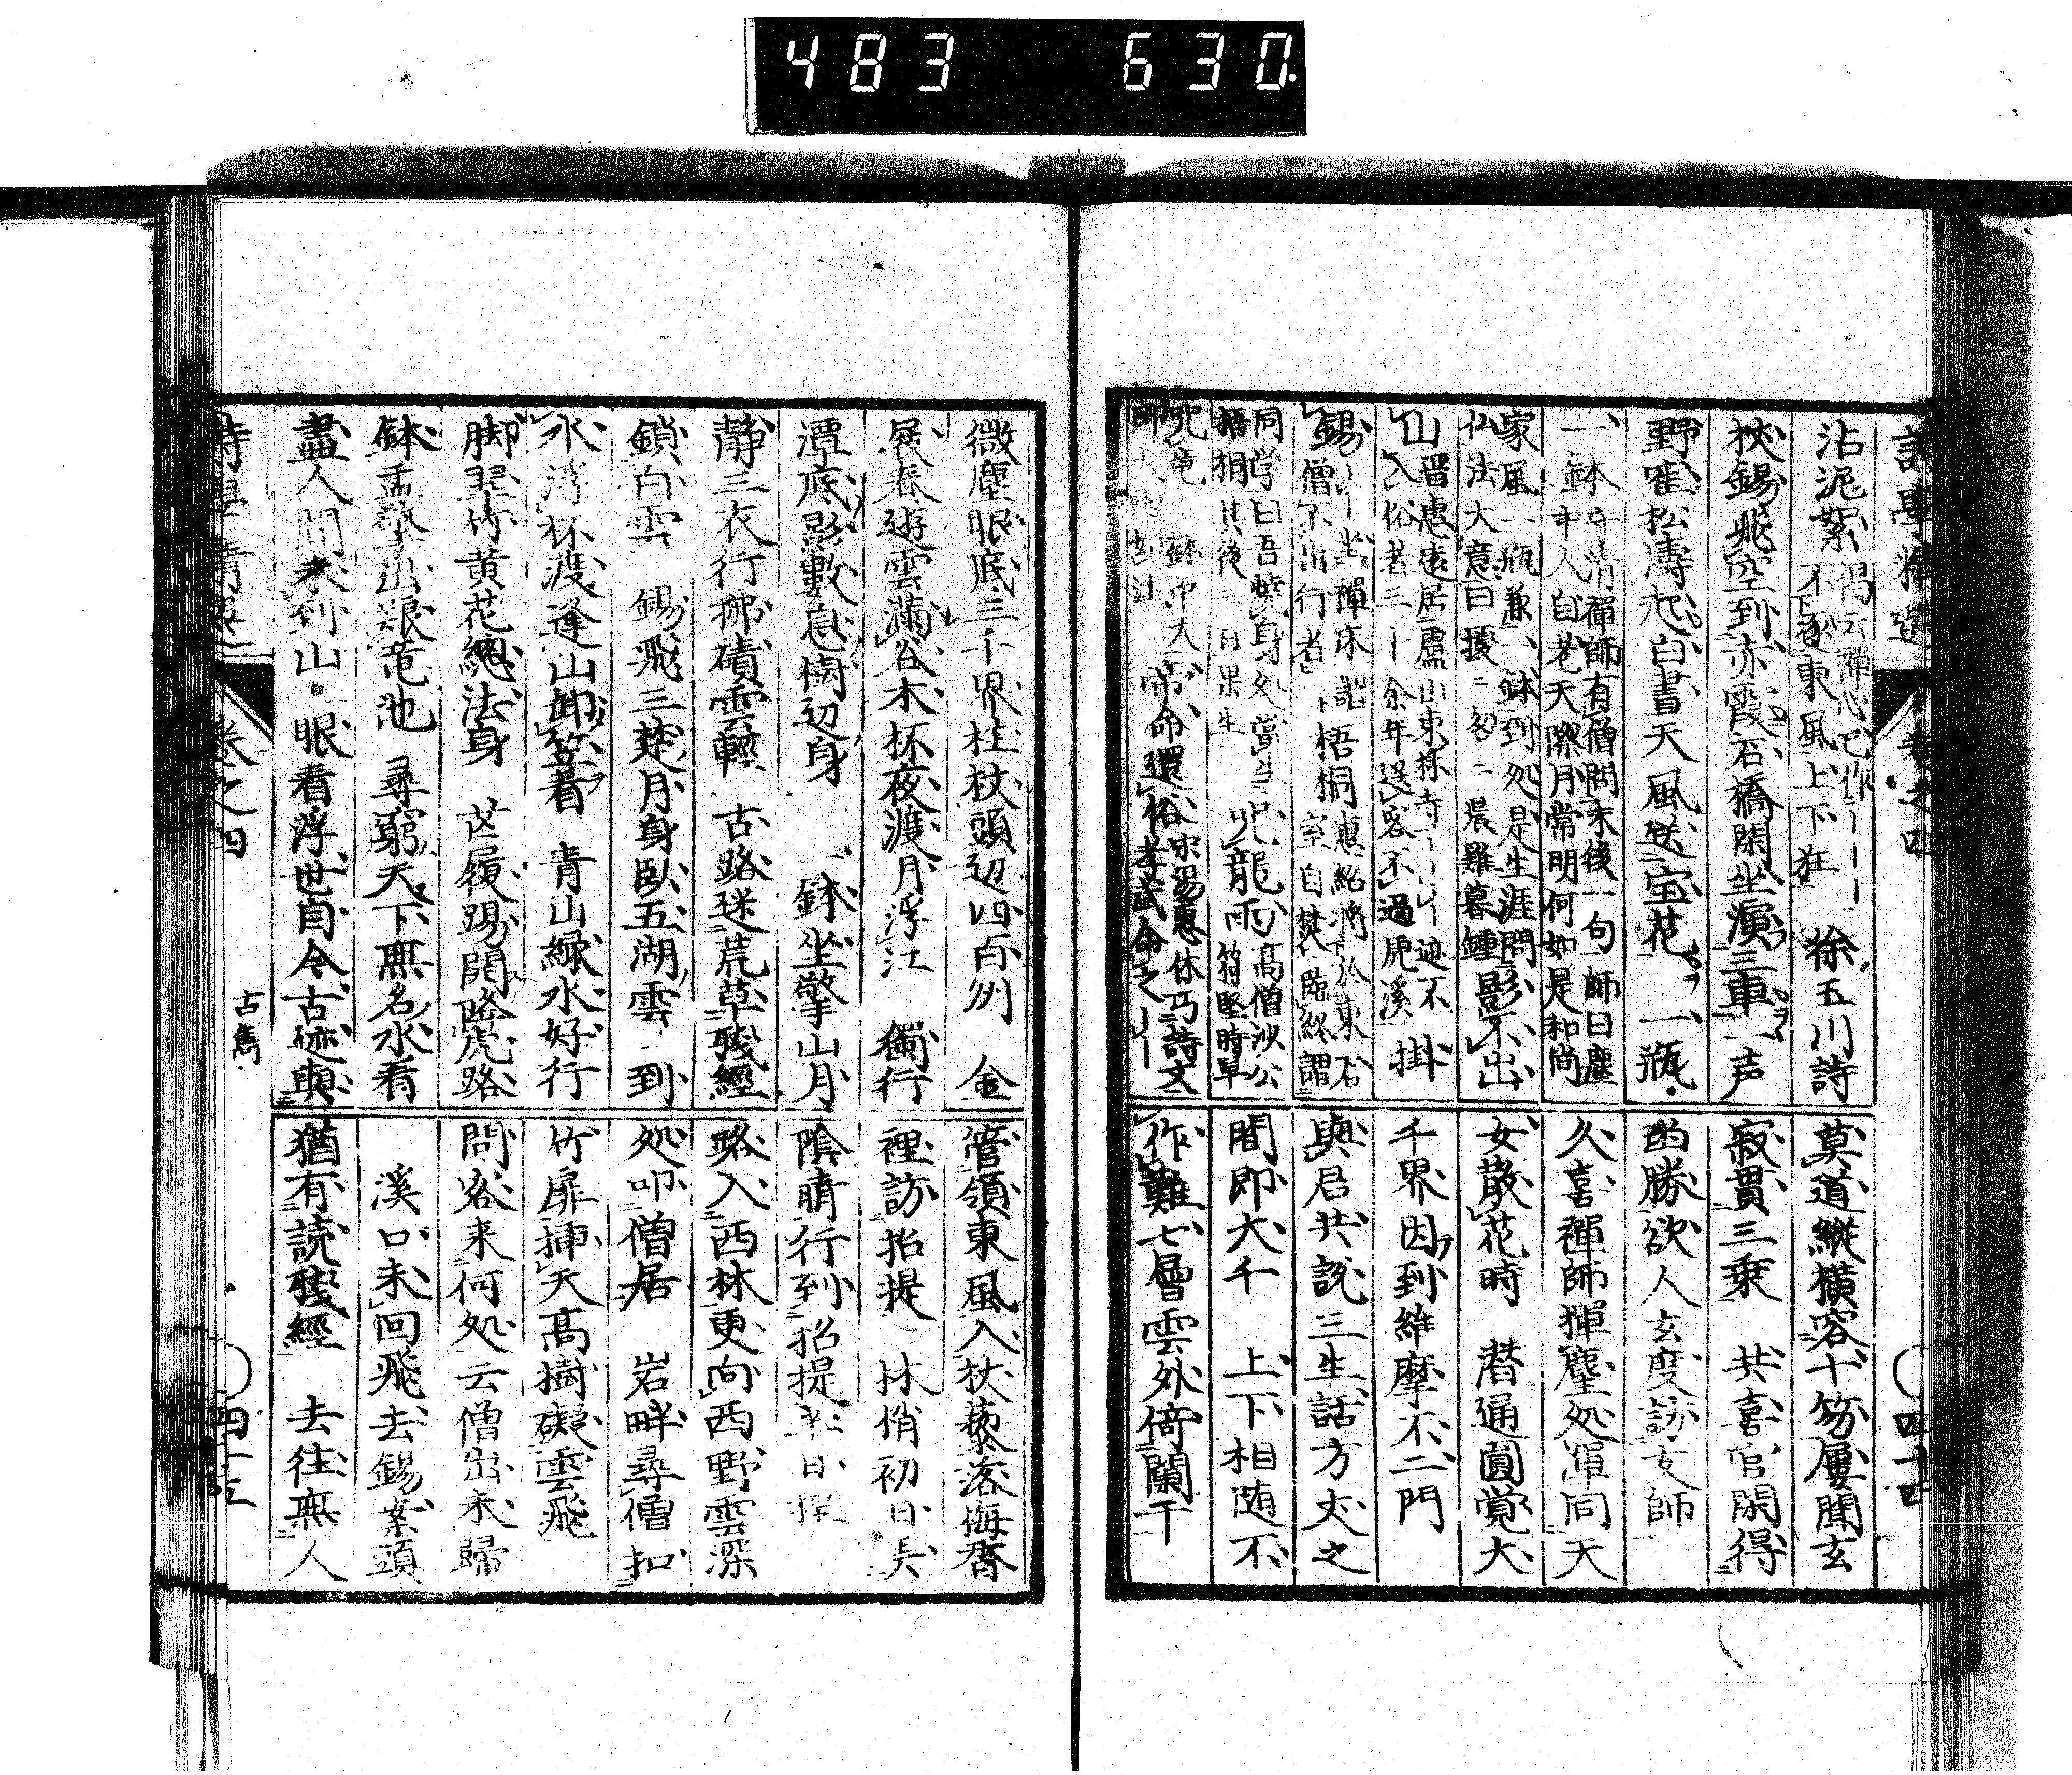 483 630.
沾泥絮 偈云禅心已作 不逐東風上下狂 徐五川詩
挾錫飛空到赤霞石橋閑坐演三車 声
野寉松濤起白昼天風送宝花 一瓶
一鉢 清禅師有僧問末後一句師曰塵中人自老天際月常明何如是和尚
家風一瓶兼一鉢到処是生涯問仏法大意曰擾二忽二晨雞暮鍾 影不出
山 晋惠遠居廬山東林寺 迹不入俗者三十余年送客不過虎溪 掛
錫 坐禅床 僧不出行者 梧桐 惠紹將於東石室自焚臨終謂
同学曰吾燒身処當生梧桐其後 日果生 咒龍雨 高僧涉公符堅時旱
咒竜 鉢中大 命還俗 宋湯惠休巧詩文孝武命之
莫道縱横容十笏屢聞玄
寂貫三乗 共喜官閑得
勝欲人玄度訪支師
久喜禅師揮麈処渾同天
女散花時 潜通圓覚大
千界因到維摩不二門
與君共説三生話方丈之
間即大千 上下相随不
作難七層雲外倚闌干
卷之四
四十四
微塵眼底三千界柱杖頭辺四百州 金
展春遊雲滿谷木杯夜渡月浮江 獨行
潭底影數息樹辺身 一鉢坐擎山月
静三衣行挪磧雲輕 古路迷荒草残經
鎖白雲 錫飛三楚月身臥五湖雲 到
水浮杯渡逢山卸笠着 青山緑水好行
脚翠竹黄花總法身 芒履踢開咯虎路
鉢盂擎出艰竜池 尋窮天下無名水看
盡人間未到山 眼看浮世自今古迹與
管領東風入杖藜落梅香
裡訪招提 林悄初日
陰晴行到招提
路入西林更向西野雲深
処叩僧居 岩畔尋僧扣
竹扉挿天高樹礙雲飛
問客来何処云僧出未歸
溪口未回飛去錫案頭
猶有読残經 去往無人
卷之四
古雋
四十五